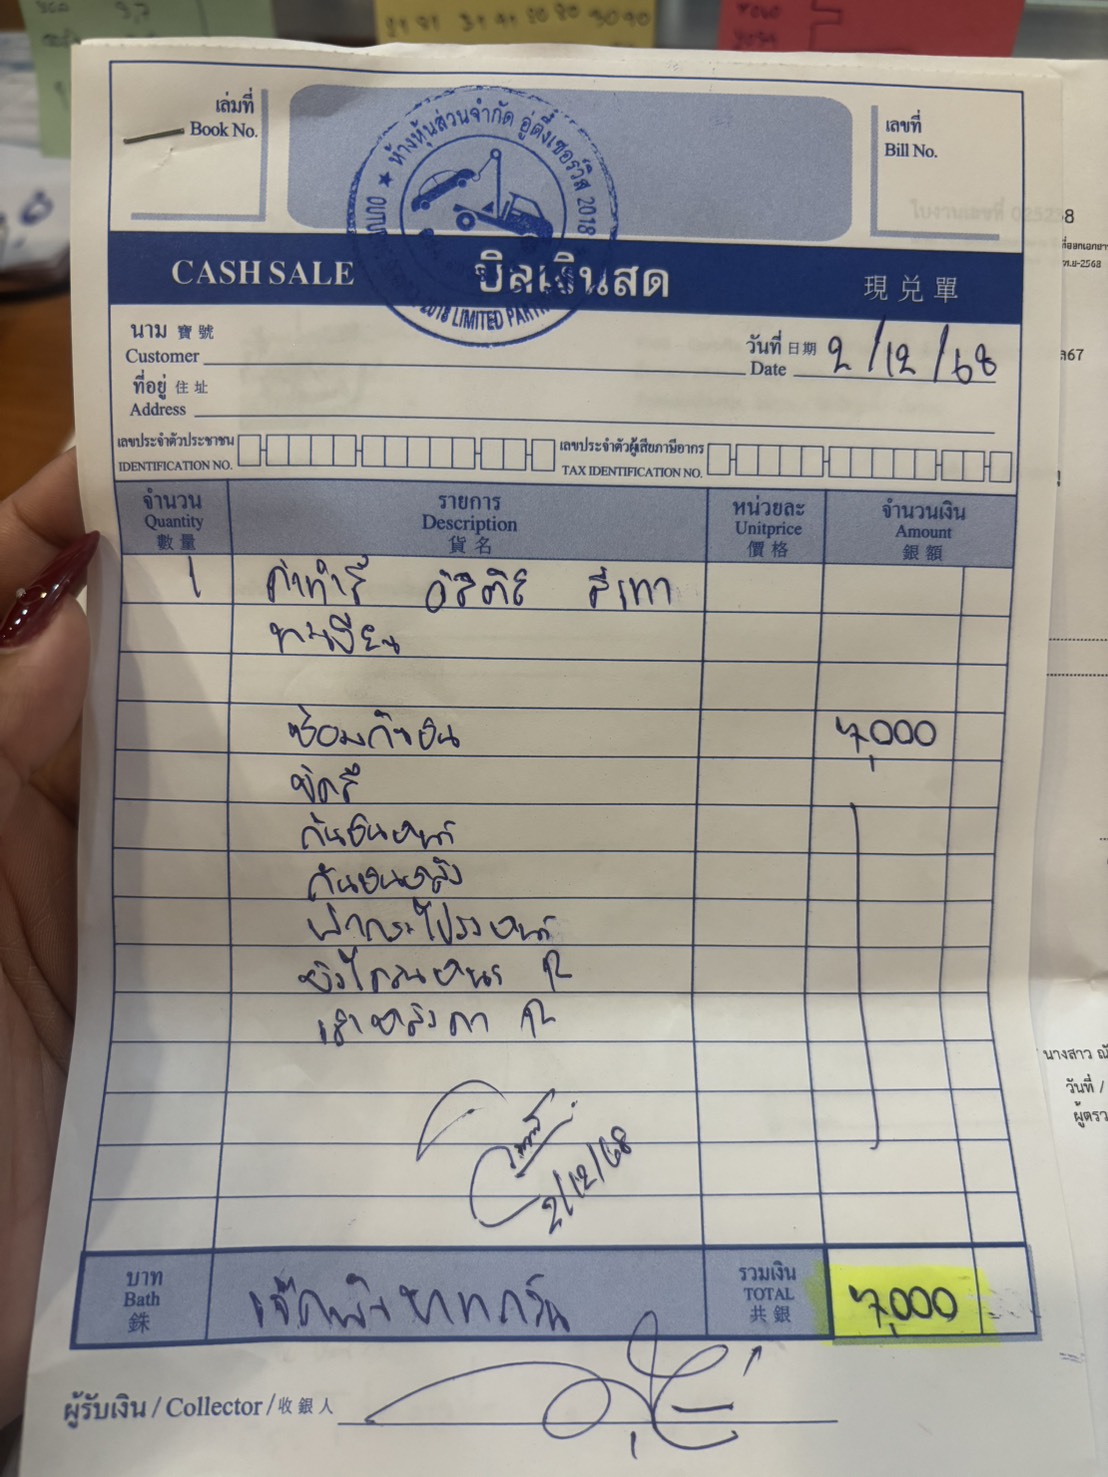 เล่มที่
Book No.
ห้างหุ้นส่วนจำกัด อู่ตี๋เซอร์วิส 2018
2018 LIMITED PART
เลขที่
Bill No.
ใบงานเลขที่
8
CASH SALE บิลเงินสด 現兌單
นาม 寶號
Customer
วันที่ 日期 2/12/68
Date
ที่อยู่ 住址
Address
เลขประจำตัวประชาชน
IDENTIFICATION NO.
เลขประจำตัวผู้เสียภาษีอากร
TAX IDENTIFICATION NO.
จำนวน รายการ หน่วยละ จำนวนเงิน
Quantity Description Unitprice Amount
數量 貨名 價格 銀額
1 ค่าทำสี สีเทา
ทะเบียน
ซ้อมกันชน 7,000
กันชนหน้า
กันชนหลัง
ฝากระโปรงหน้า
2/12/68
บาท
Bath
銖
เจ็ดพันบาทถ้วน
รวมเงิน
TOTAL
共銀
7,000
ผู้รับเงิน / Collector / 收銀人
นางสาว
วันที่ /